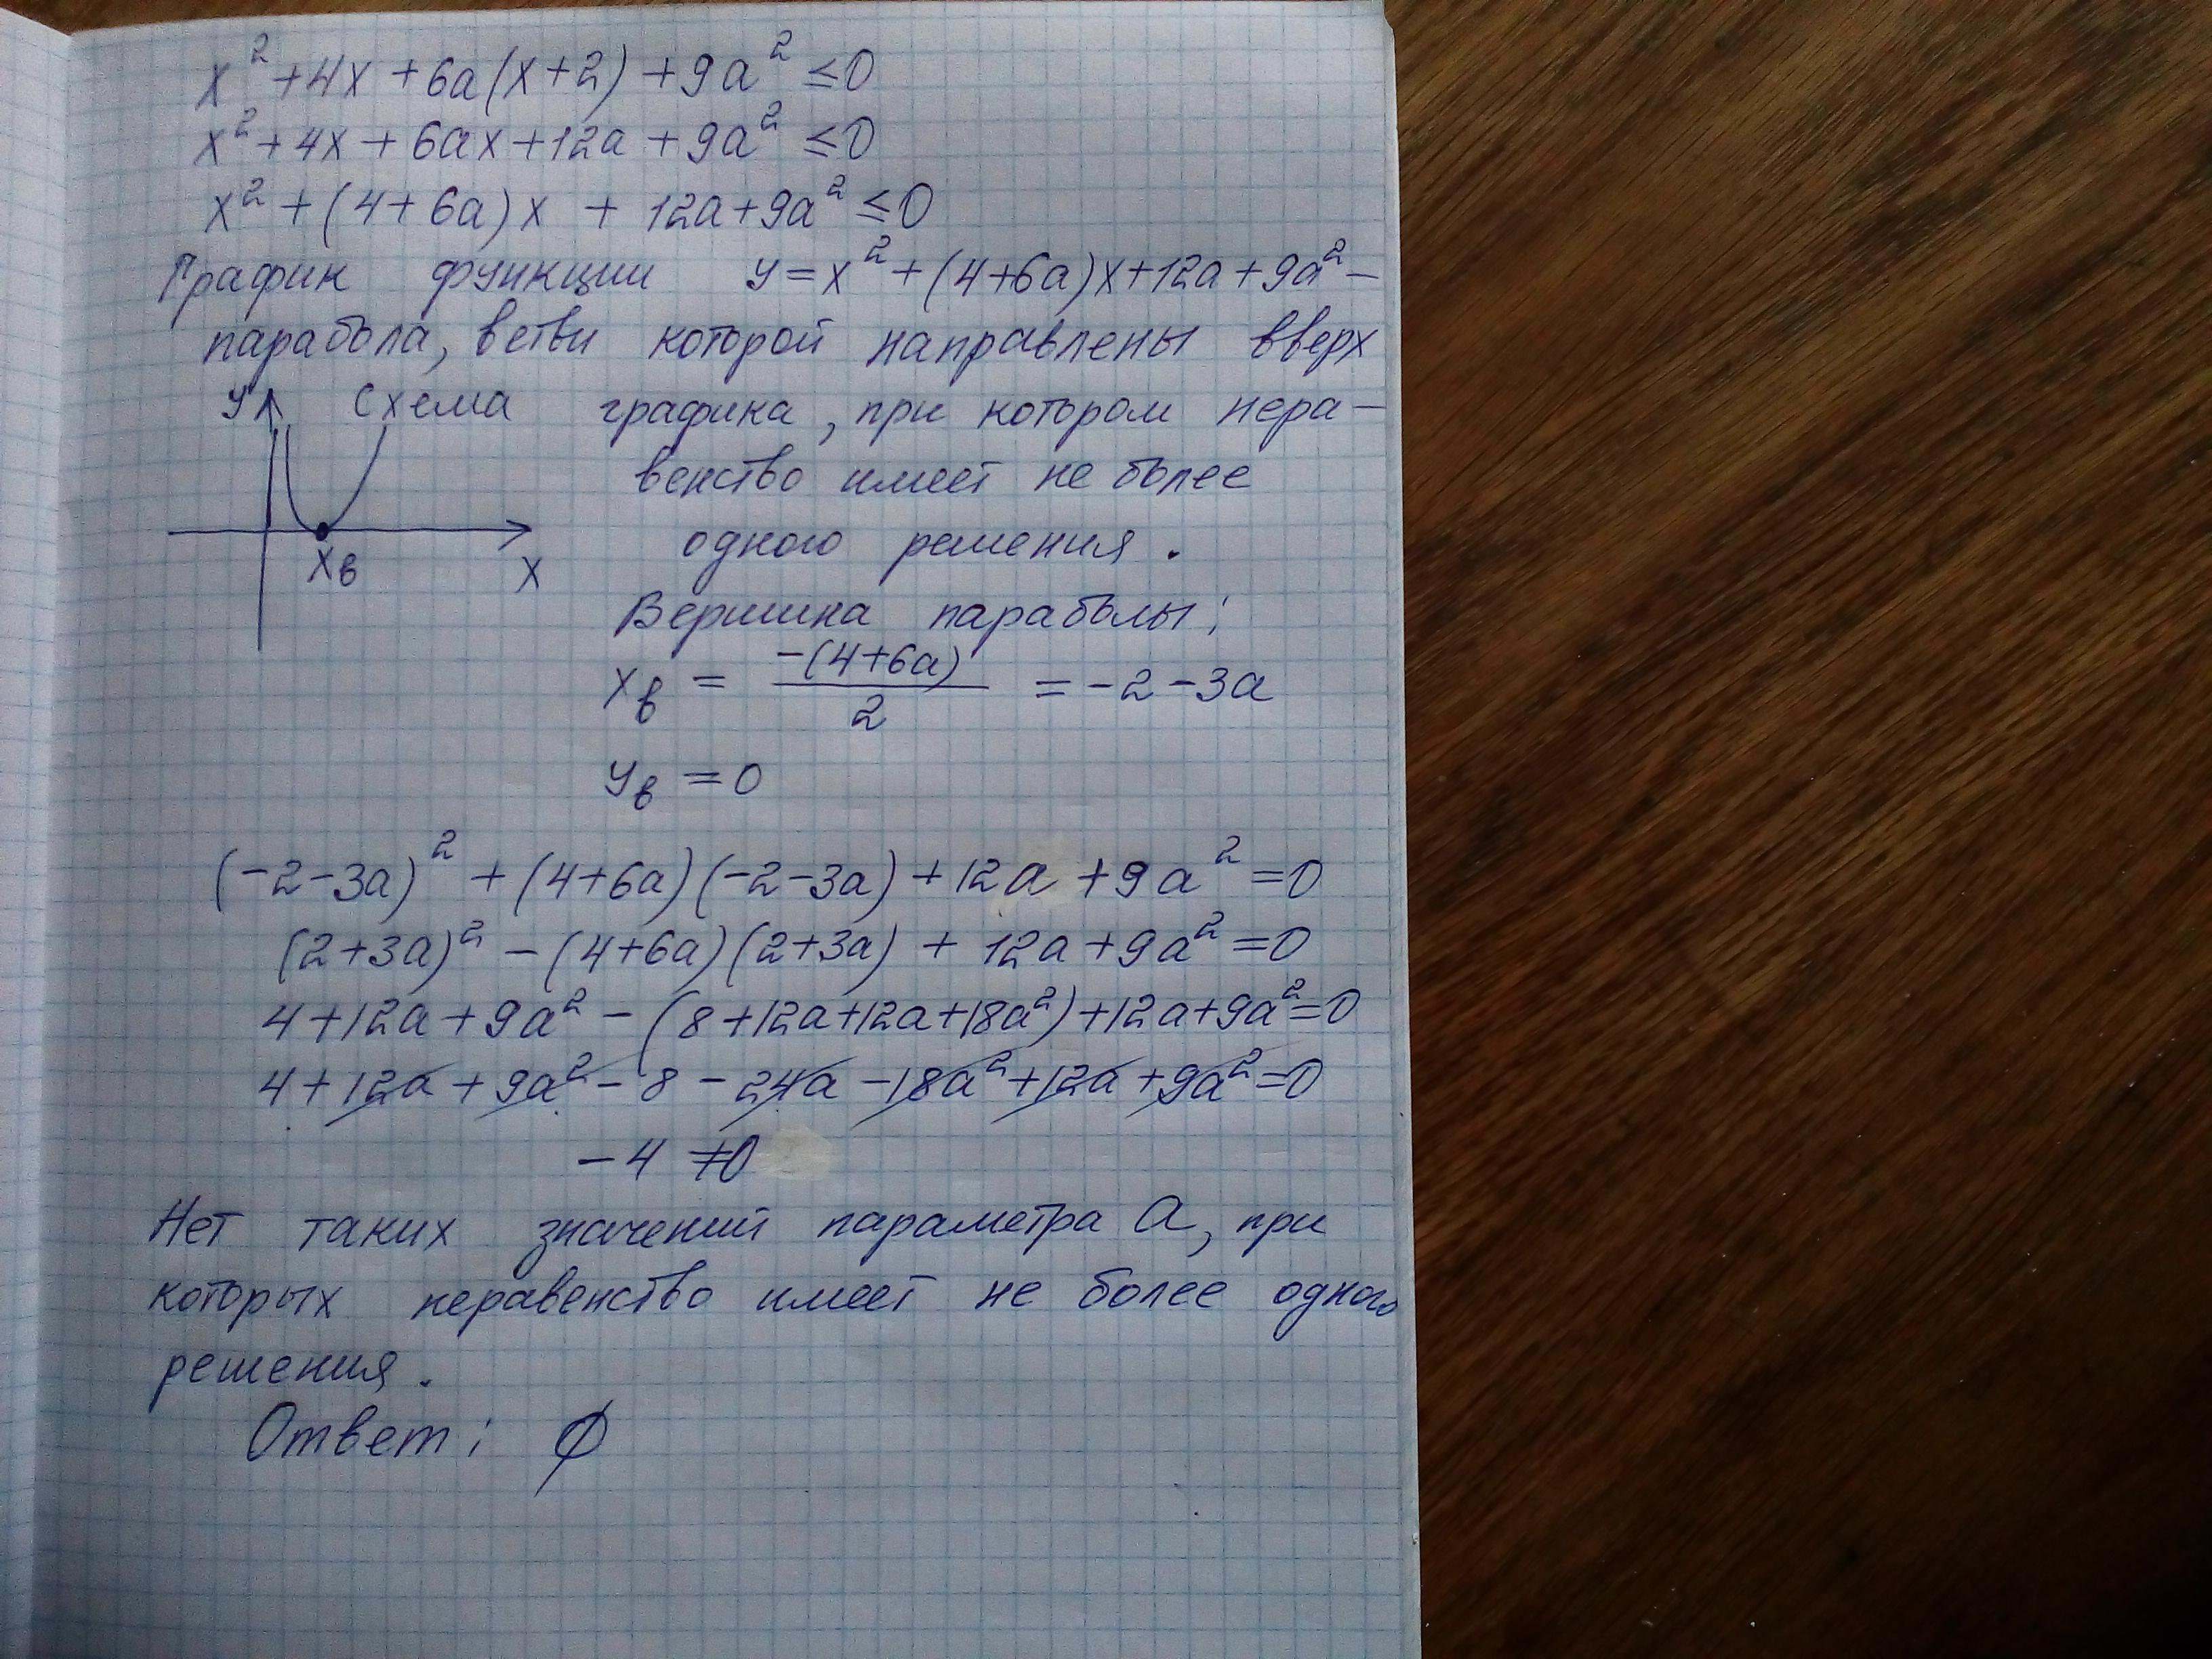 x² + 4x + 6a(x+2) + 9a² ≤ 0
x² + 4x + 6ax + 12a + 9a² ≤ 0
x² + (4+6a)x + 12a + 9a² ≤ 0
График функции y = x² + (4+6a)x + 12a + 9a² –
парабола, ветви которой направлены вверх
y Схема графика, при котором нера-
венство имеет не более
одного решения.
xв x
Вершина параболы:
xв = -(4+6a)/2 = -2-3a
yв = 0
(-2-3a)² + (4+6a)(-2-3a) + 12a + 9a² = 0
(2+3a)² - (4+6a)(2+3a) + 12a + 9a² = 0
4 + 12a + 9a² - (8+12a+12a+18a²) + 12a + 9a² = 0
4 + 12a + 9a² - 8 - 24a - 18a² + 12a + 9a² = 0
-4 ≠ 0
Нет таких значений параметра a, при
которых неравенство имеет не более одного
решения.
Ответ: ∅